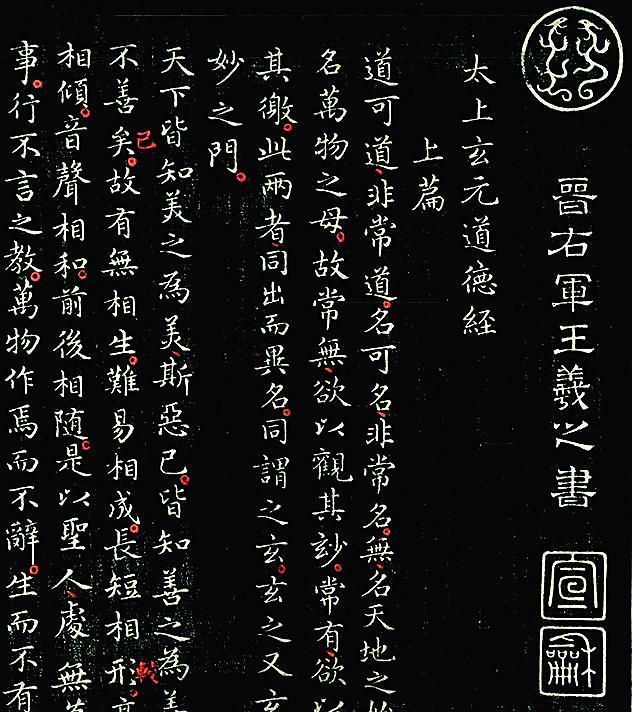 晉右軍王羲之書
宣
龢
太上玄元道德経
上篇
道可道非常道名可名非常名無名天地之始
名萬物之母故常無欲以觀其玅常有欲以
其徼此兩者同出而異名同謂之玄玄之又玄
妙之門
天下皆知美之為美斯惡已皆知善之為善
不善矣故有無相生難易相成長短相形高
已
較
相傾音聲相和前後相隨是以聖人處無為
事行不言之教萬物作焉而不辭生而不有